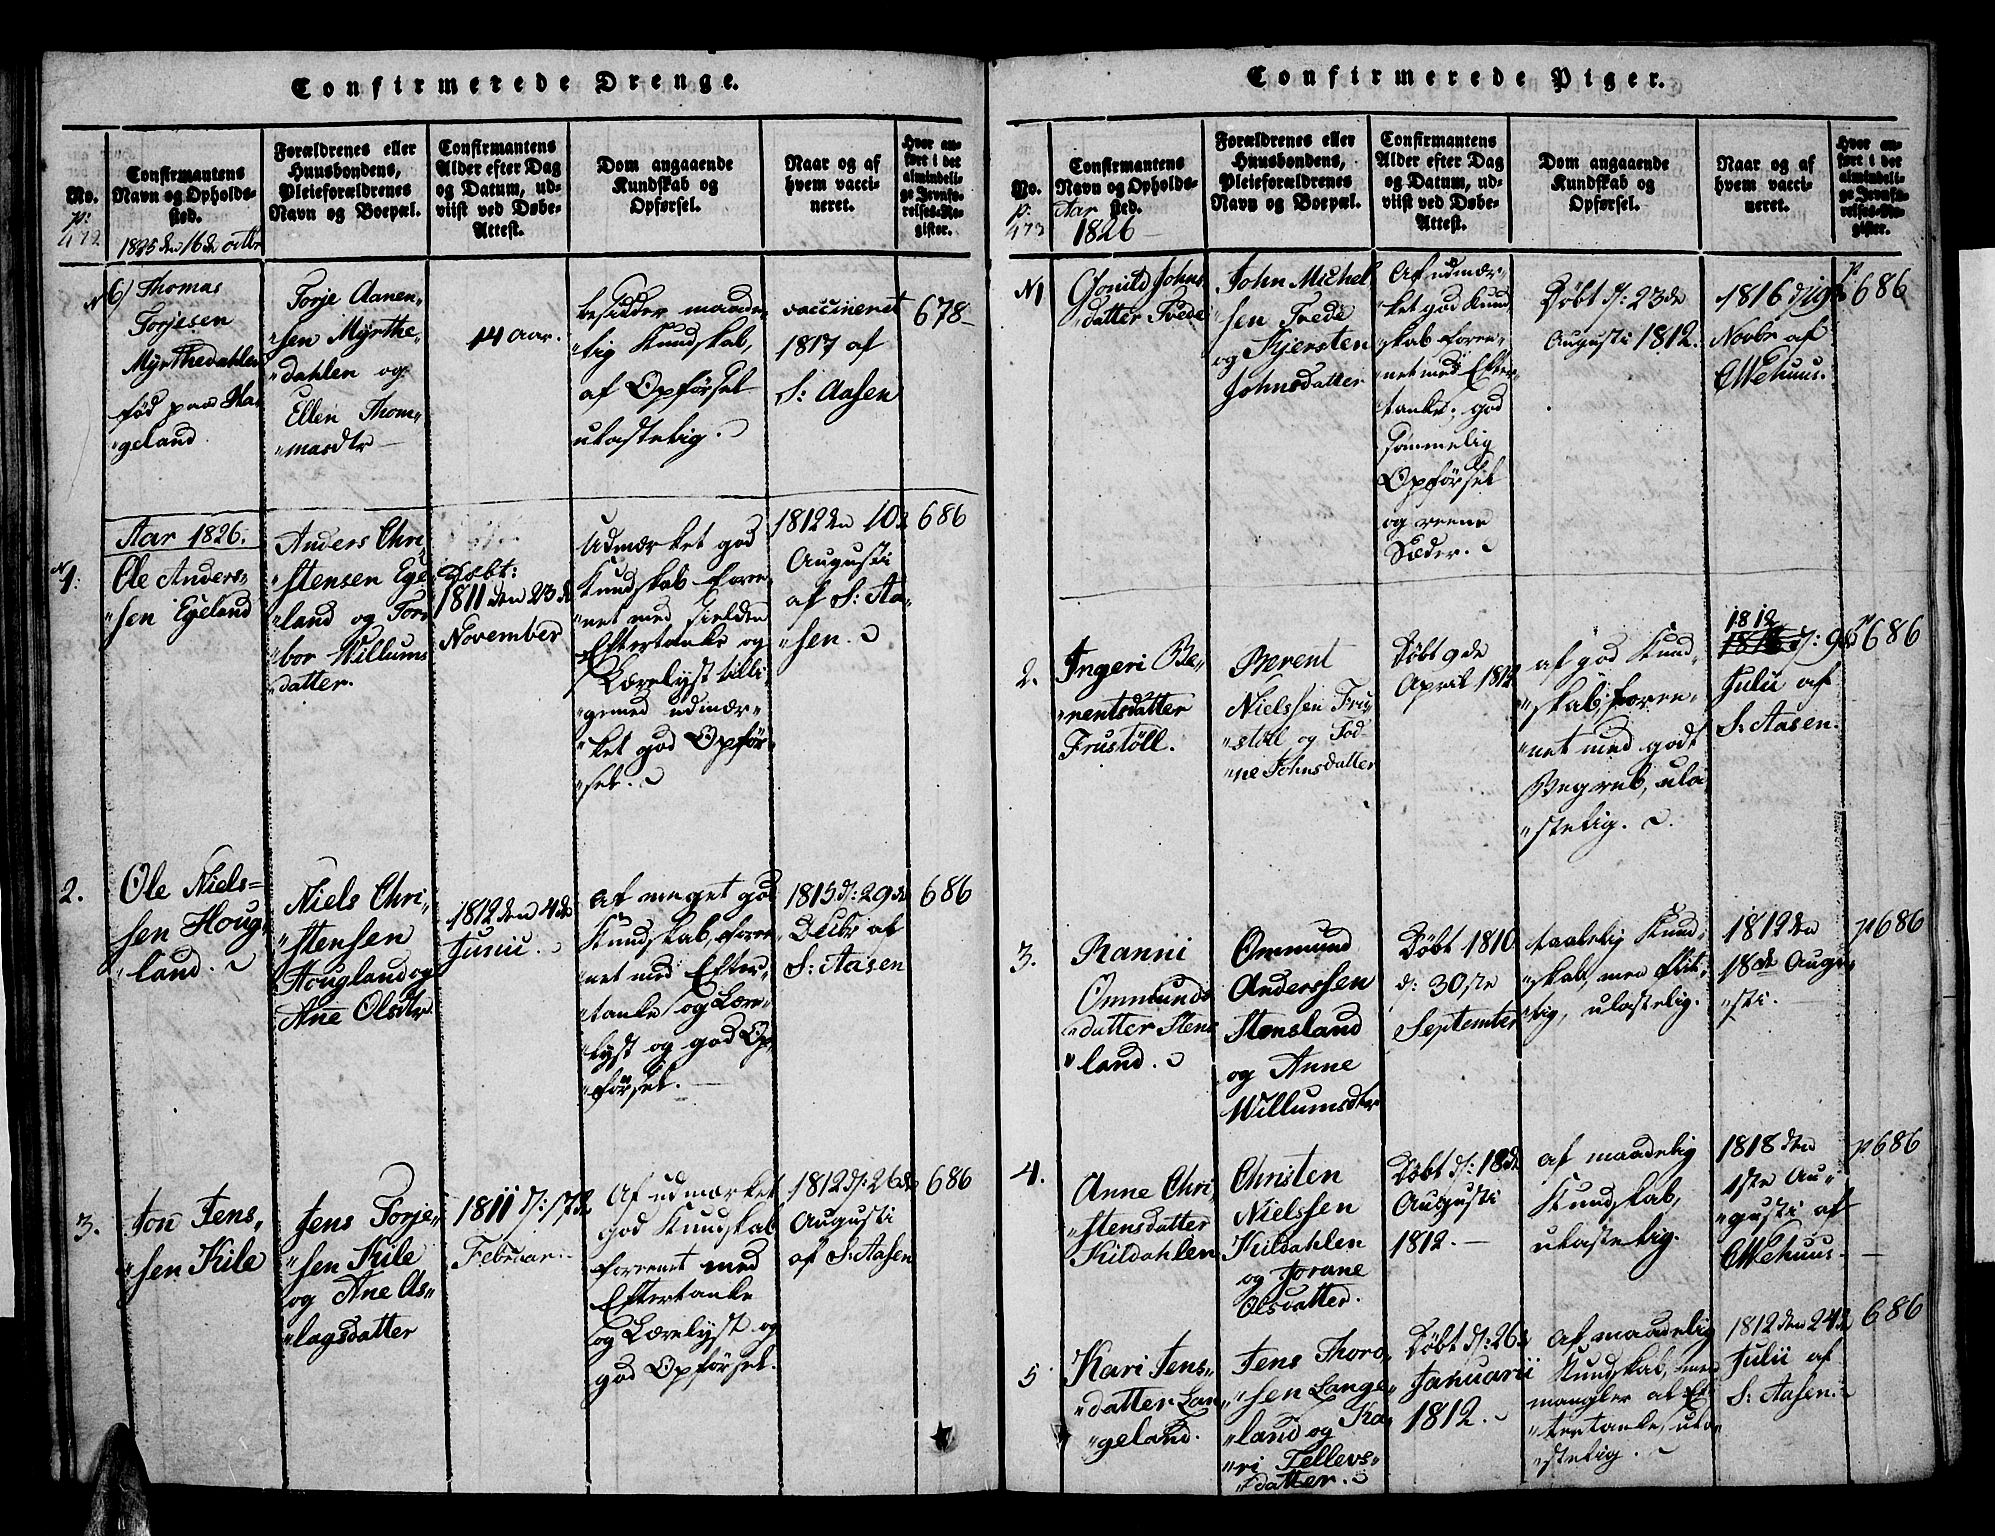 Confirmerede Drenge.
No.
p: 472
Confirmantens
Navn og Opholds-
sted.
1825 den 16de octbr
Forældrenes eller
Huusbondens,
Pleieforældrenes
Navn og Boepæl.
Confirmantens
Alder efter Dag
og Datum, ud-
viist ved Døbe-
Attest.
Dom angaaende
Kundskab og
Opførsel.
Naar og af
hvem vacci-
neret.
Hvor an-
ført i det
almindeli-
ge Jevnfø-
relses-Re-
gister.
N 6)
Thomas
Torjesen
Myrthedahlen
fød paa Ha-
"geland
Torje Aanen-
"sen Myrthe-
"dahlen og
Ellen Thom-
"masdtr
14 aar.
besidder maade-
"lig Kundskab,
af Opførsel
ulastelig.
vaccineret
1817 af
S: Aasen
678
Aar 1826.
N 1.
Ole Anders-
"sen Egeland
Anders Chri-
"stensen Ege-
"land og Tor-
"bor Willums
"datter.
Døbt:
1811 den 23de
November
Udmærket god
Kundskab foree-
"net med sielden
Eftertanke og
Lærelyst tilli-
"gemed udmær-
"ket god Opfør-
"sel.
1812 den 10de
Augusti
af S: Aa-
"sen.
686
2.
Ole Niels-
sen Houg-
"land.
Niels Chri-
"stensen
Hougland og
Ane Olsdtr.
1812 den 4de
Junii.
Af meget god
Kundskab, foree-
"net med Efter-
"tanke og Lære-
"lyst og god Op-
"førsel.
1815 d: 29de
Decbr af
S: Aasen
686
3.
Jon Jens-
"sen Kile
Jens Torje-
"sen Kile
og Ane As-
"lagsdatter
1811 d: 17de
Februar.
Af udmærket
god Kundskab
foreenet med
Eftertanke
og Lærelyst og
god Opførsel.
1812 d: 26de
Augusti
af S: Aasen
686
Confirmerede Piger.
No.
p. 473
Confirmantens
Navn og Opholds-
sted.
Aar
1826
Forældrenes eller
Huusbondens,
Pleieforældrenes
Navn og Boepæl.
Confirmantens
Alder efter Dag
og Datum, ud-
viist ved Døbe-
Attest.
Dom angaaende
Kundskab og
Opførsel.
Naar og af
hvem vacci-
neret.
Hvor an-
ført i det
almindeli-
ge Jevnfø-
relses-Re-
gister.
N 1
Gonild Johns
"datter Tvede
John Michel
"sen Tvede
og Kjersten
Johnsdatter
Af udmær-
"ket god Kund
"skab foree-
"net med Efter-
"tanke; god
sømmelig
Opførsel
og reene
Sæder.
Døbt d: 23de
Augusti 1812.
1816 d 19de
Novbr af
Ettehuus.
p 686
2.
Ingeri Be-
"rentsdatter
Frustöll.
Berent
Nielssen Fru-
"stöll og Tod-
"ne Johnsdatter
Døbt 9de
April 1812
af god Kund-
"skab, foree-
"net med godt
Begreb, ula-
"stelig.
1812
d: 9de
Julii af
S: Aasen.
p 686
3.
Ranni
Ommunds
"datter Stens
"land.
Ommund
Anderssen
Stensland
og Anne
Willumsdtr
Døbt 1810
d: 30ste
September
taalelig Kund-
"skab, men flit-
"tig, ulastelig.
1812 den
18de Augu-
"sti.
p 686
4.
Anne Chri-
"stensdatter
Kildahlen
Christen
Nielssen
Kildahlen
og Jorane
Olsdatter.
Døbt d: 18de
Augusti
1812.
af maadelig
Kundskab,
ulastelig.
1818 den
1ste Au-
"gusti af
Ettehuus.
p 686
5.
Kari Jens-
"datter Lan-
"geland.
Jens Thors-
"sen Lange-
"land og Ka-
"ri Tellevs-
"datter.
Døbt d: 26de
Januarii
1812.
af maadelig
Kundskab, men
mangler al Ef-
"tertanke, ula-
"stelig.
1812 den 24de
Julii af
S: Aasen.
686